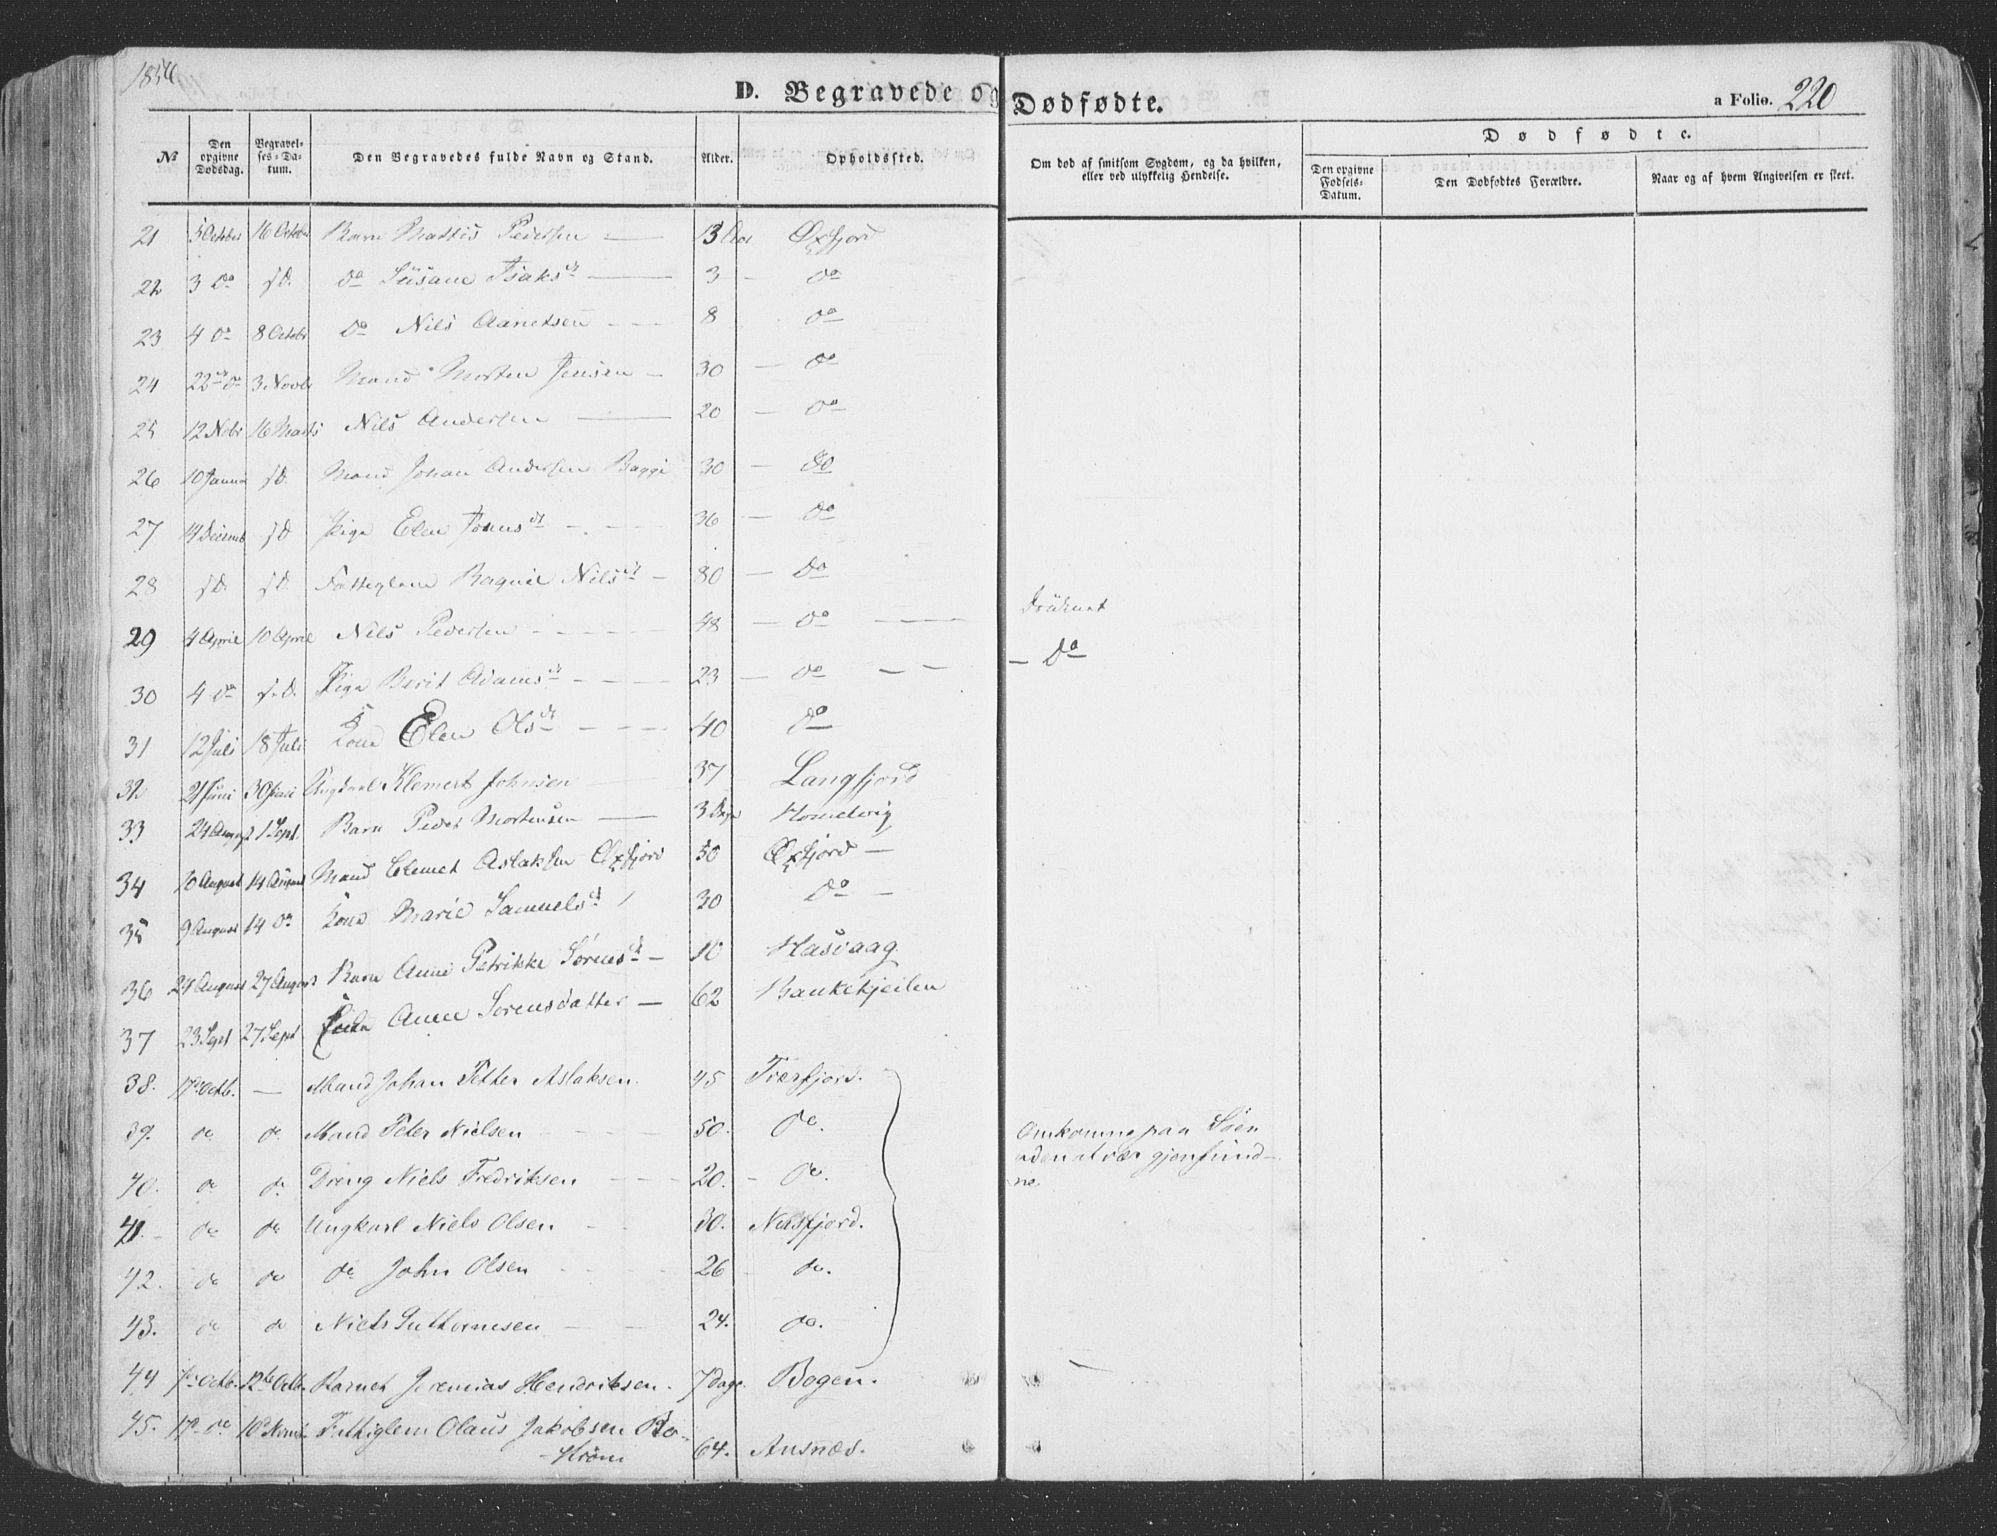 1856
D. Begravede og Dødfødte.
a Folio. 220
№ | Den opgivne Dødsdag. | Begravelses-Datum. | Den Begravedes fulde Navn og Stand. | Alder. | Opholdssted. | Om død af smitsom Sygdom, og da hvilken, eller ved ulykkelig Hendelse. | Dødfødte. | Den opgivne Fødsels-Datum. | Den Dødfødtes Forældre. | Naar og af hvem Angivelsen er skeet.
21 5 October 16 October Barn Mattis Pedersen — 13 Aar Øxfjord
22 3 do s.D. do Susane Isaksdt — 3 — do
23 4 do 8 Octobr do Nils Aanetsen — 8 do
24 22de do 3 Novbr Mand Morten Jensen — 30 — do
25 12 Nobr 16 Marts Nils Andersen — 20 — do
26 10 Januar s.D. Mand Johan Andersen Bagge 30 — do
27 14 Decemb s.D. Pige Elen Jonnsdt — 36 — do
28 s.D. s.D. Fattiglem Ragnil Nilsdt — 80 — do
29 4 April 10 April Nils Pedersen — 48 — do — Druknet
30 4 do s.D. Pige Berit Adamsdt — 23 — do — — do
31 12 Juli 18 Juli Kone Elen Olsdt — 40 do
32 21 Juni 30 Juni Ungkarl Klemert Johnsen 37 Langfjord
33 24 August 1 Sept. Barn Peder Mortensen — 3 Dage Homelvig
34 10 August 14 August Mand Clemet Aslaksen Øxfjord 50 Øxfjord —
35 9 August 14 do Kone Marie Samuelsdt 30 do —
36 24 August 27 August Barn Anne Petrikke Sørensdt — 10 Hasvaag
37 23 Sept 27 Sept Anne Sorensdatter — 62 Bankekjeilen
38. 17de Octb. — Mand Johan Petter Aslaksen. 45 Træfjord.
39. do do. Mand Peter Nielsen 50. do. Omkomne paa Søen
uden at være gjenfund-
ne
40. do do Dreng Niels Fredriksen — 20. — do.
41. do do Ungkarl Niels Olsen — 30. Nusfjord.
42. do do do John Olsen 26 do.
43. do do Niels Guttormsen — 24. do.
44 7de Octb. 12te Octb. Barnet Jeremias Hendriksen. 7 Dage. Bogen.
45. 17de do Fattiglem Olaus Jakobsen Bo-
-Strøm 64. Ansnæs.